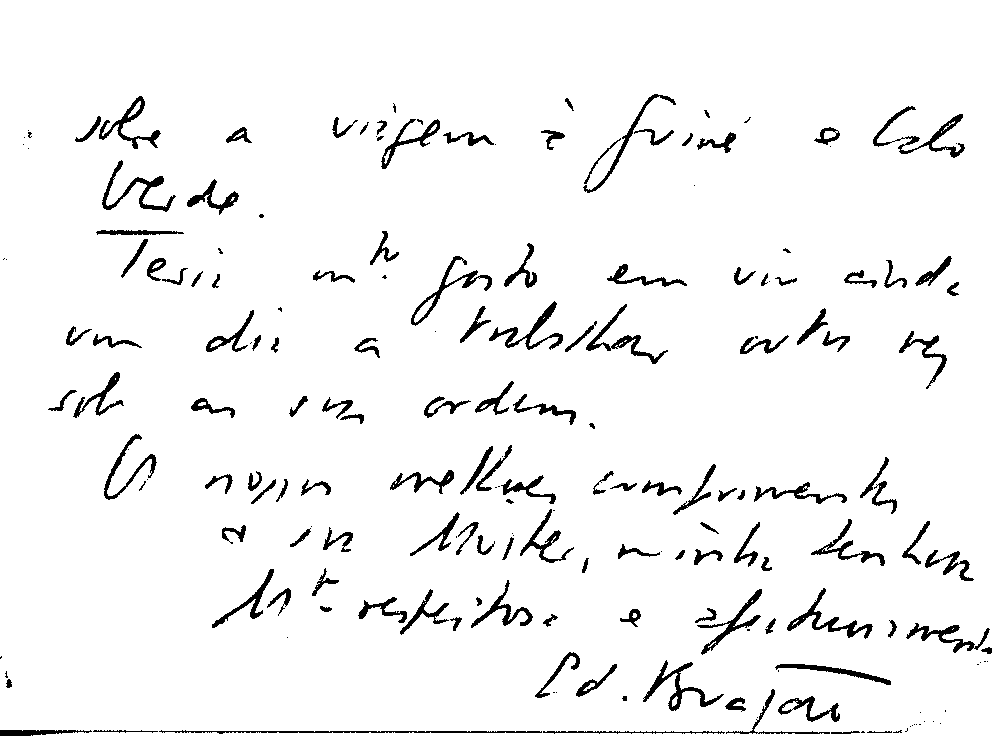 sobre a viagem à Guiné e Cabo
Verde.
Teria mto. gosto em vir ainda
um dia a trabalhar outra vez
sob as suas ordens.
Os nossos melhores cumprimentos
a sua Mulher, minha Senhora
Mt. respeitosa e afectuosamente
Ed.